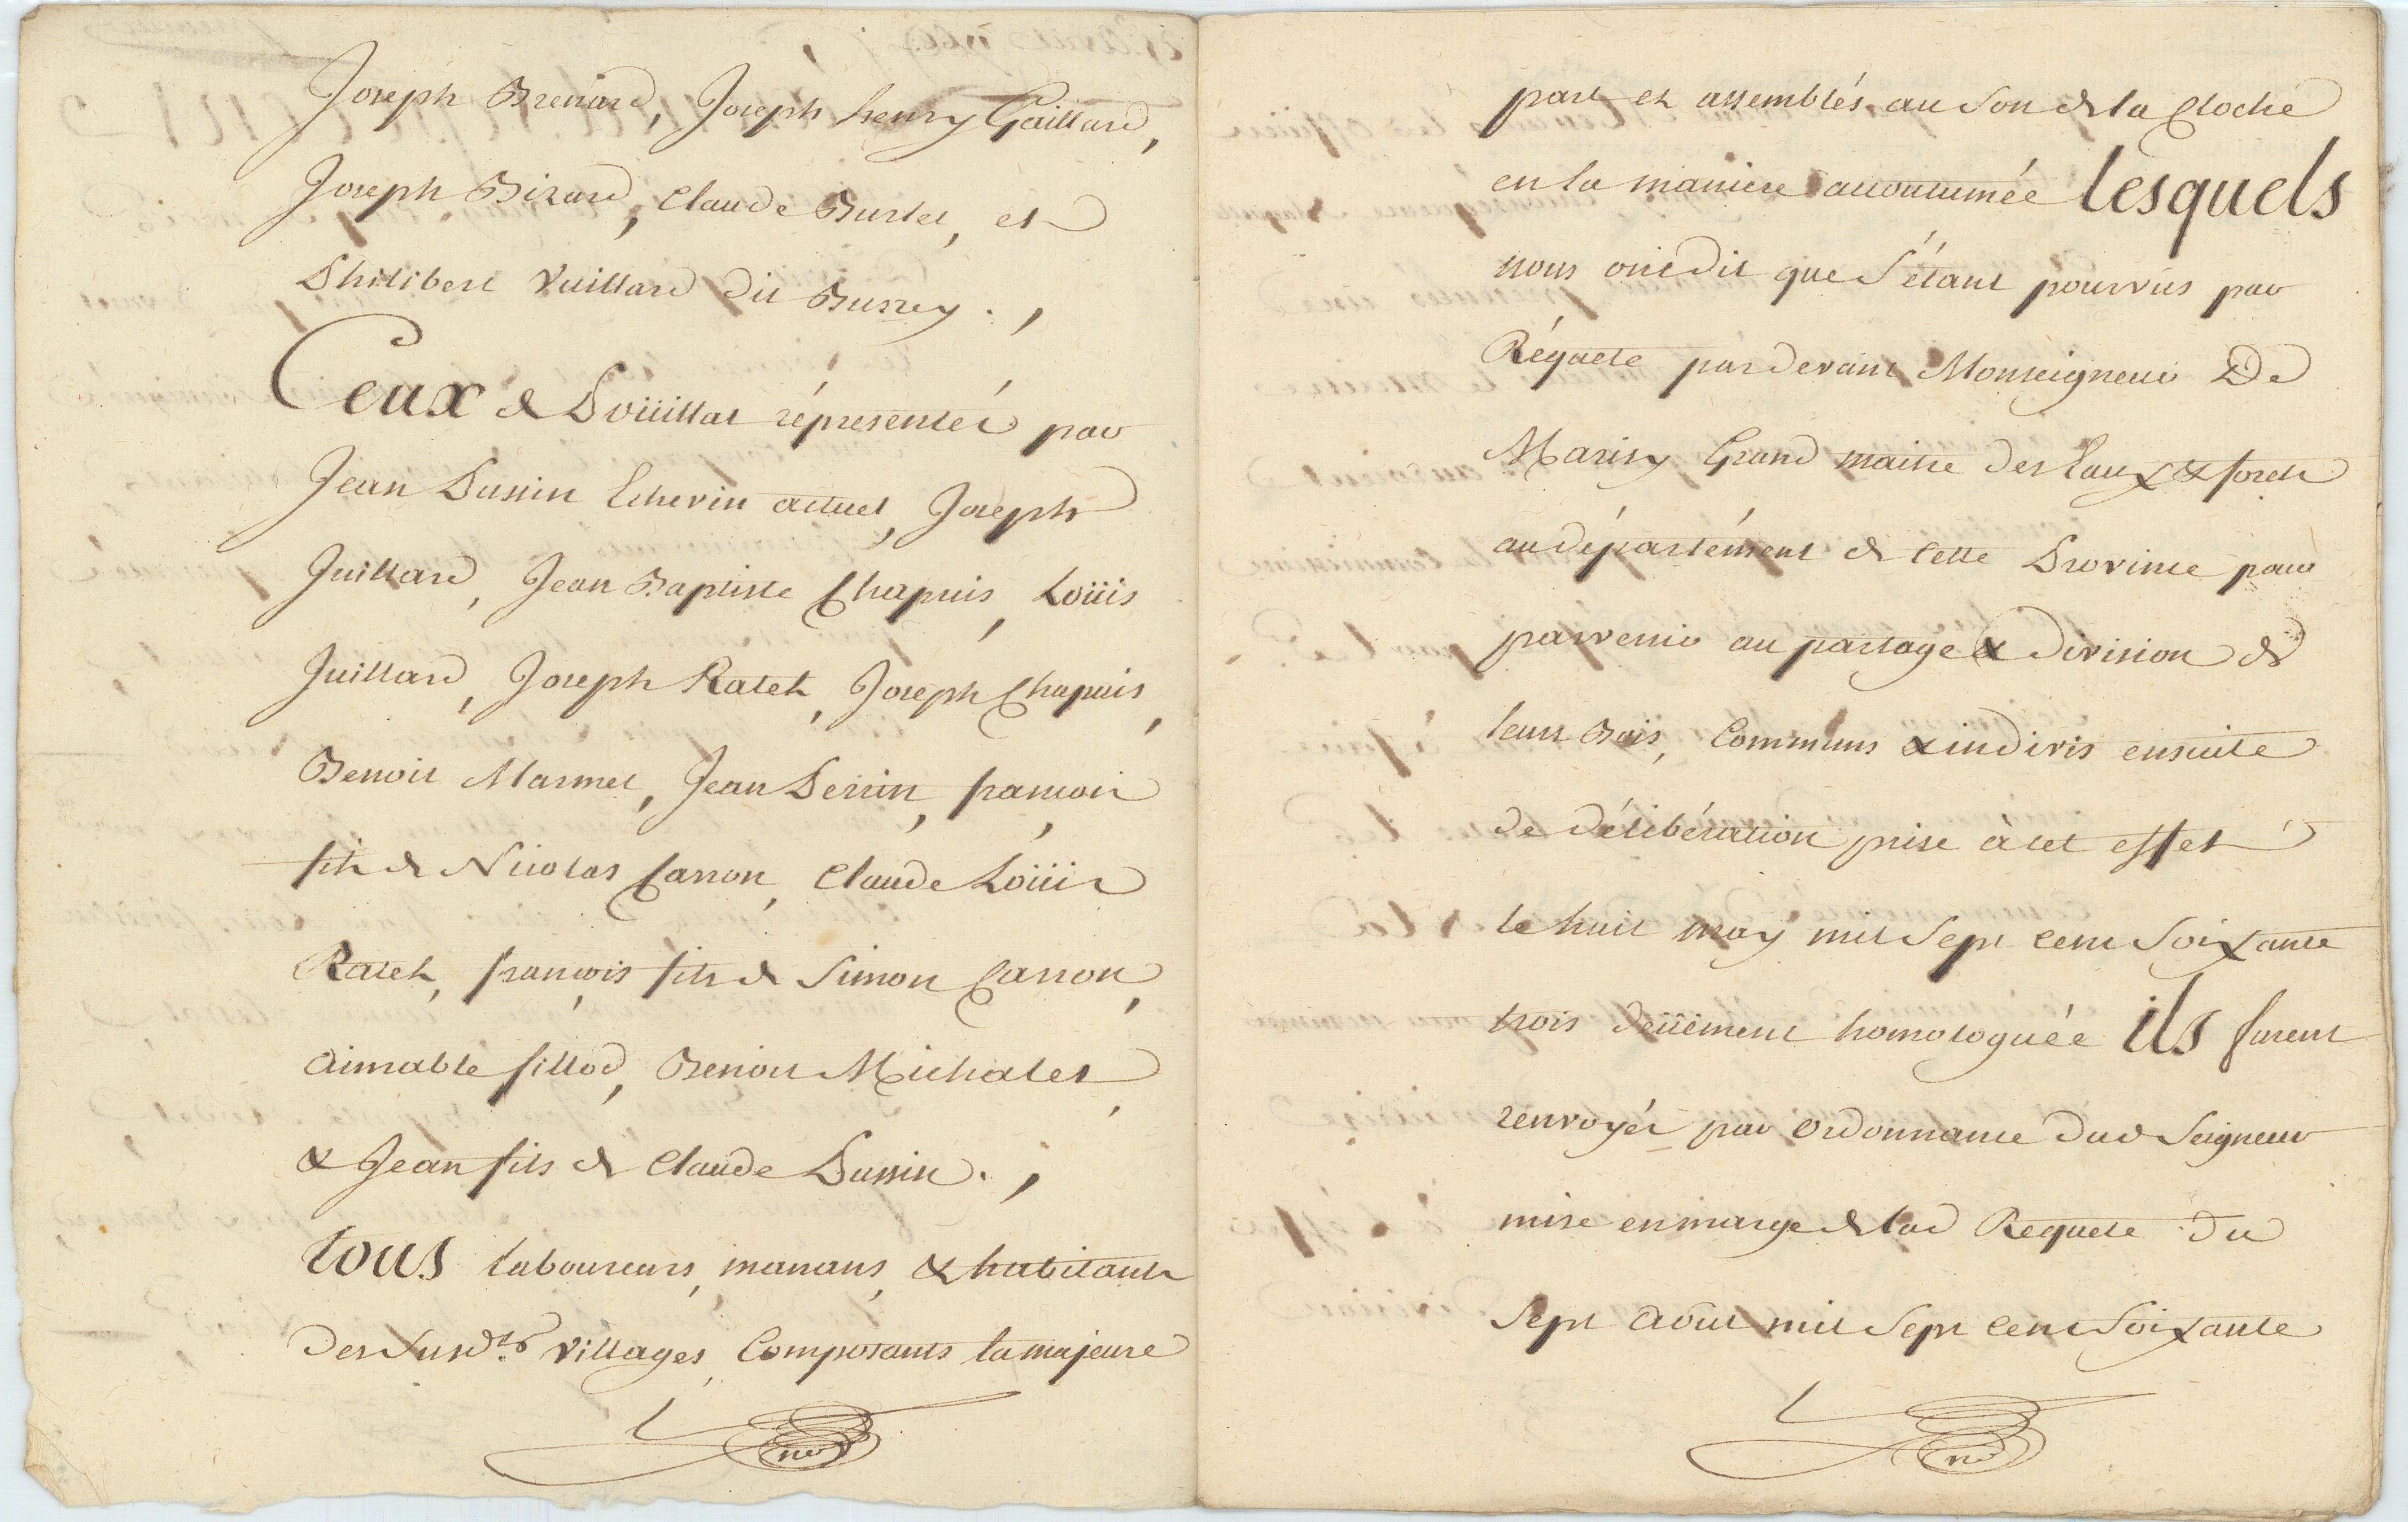 Joseph Brenard, Joseph henry Gaillard,
Joseph Bizard, Claude Burlet, et
Philibert Vuillard dit Burrey .,
Ceux de Pöüillat réprésentés par
Jean Pussin Echevin actuel, Joseph
Juillard, Jean Baptiste Chapuis, Loüis
Juillard, Joseph Ratel, Joseph Chapuis,
Benoit Marmet, Jean Perrin, francois
fils de Nicolas Carron, Claude Loüis
Ratel, françois fils de Simon Carron,
Aimable fillod, Benoit Michalet,
& Jean fils de Claude Pussin .,
tous laboureurs, manans, & habitants
des susdts. Villages, Composants la majeure
part et assemblés au Son de la Cloche
en la maniere accoutumée lesquels
nous ont dit que S'étant pourvus par
Réquete pardevant Monseigneur De
Marisy Grand maitre des Eaux & forets
au département de Cette Province pour
parvenir au partage & division de
leurs Bois, Communs & indivis ensuite
de délibération prise à cet effet
le huit may mil Sept Cent Soixante
trois deüement homologuée ils furent
renvoyés par Ordonnance dud Seigneur
mise en marge de lad Requete du
Sept Aout mil Sept Cent Soixante